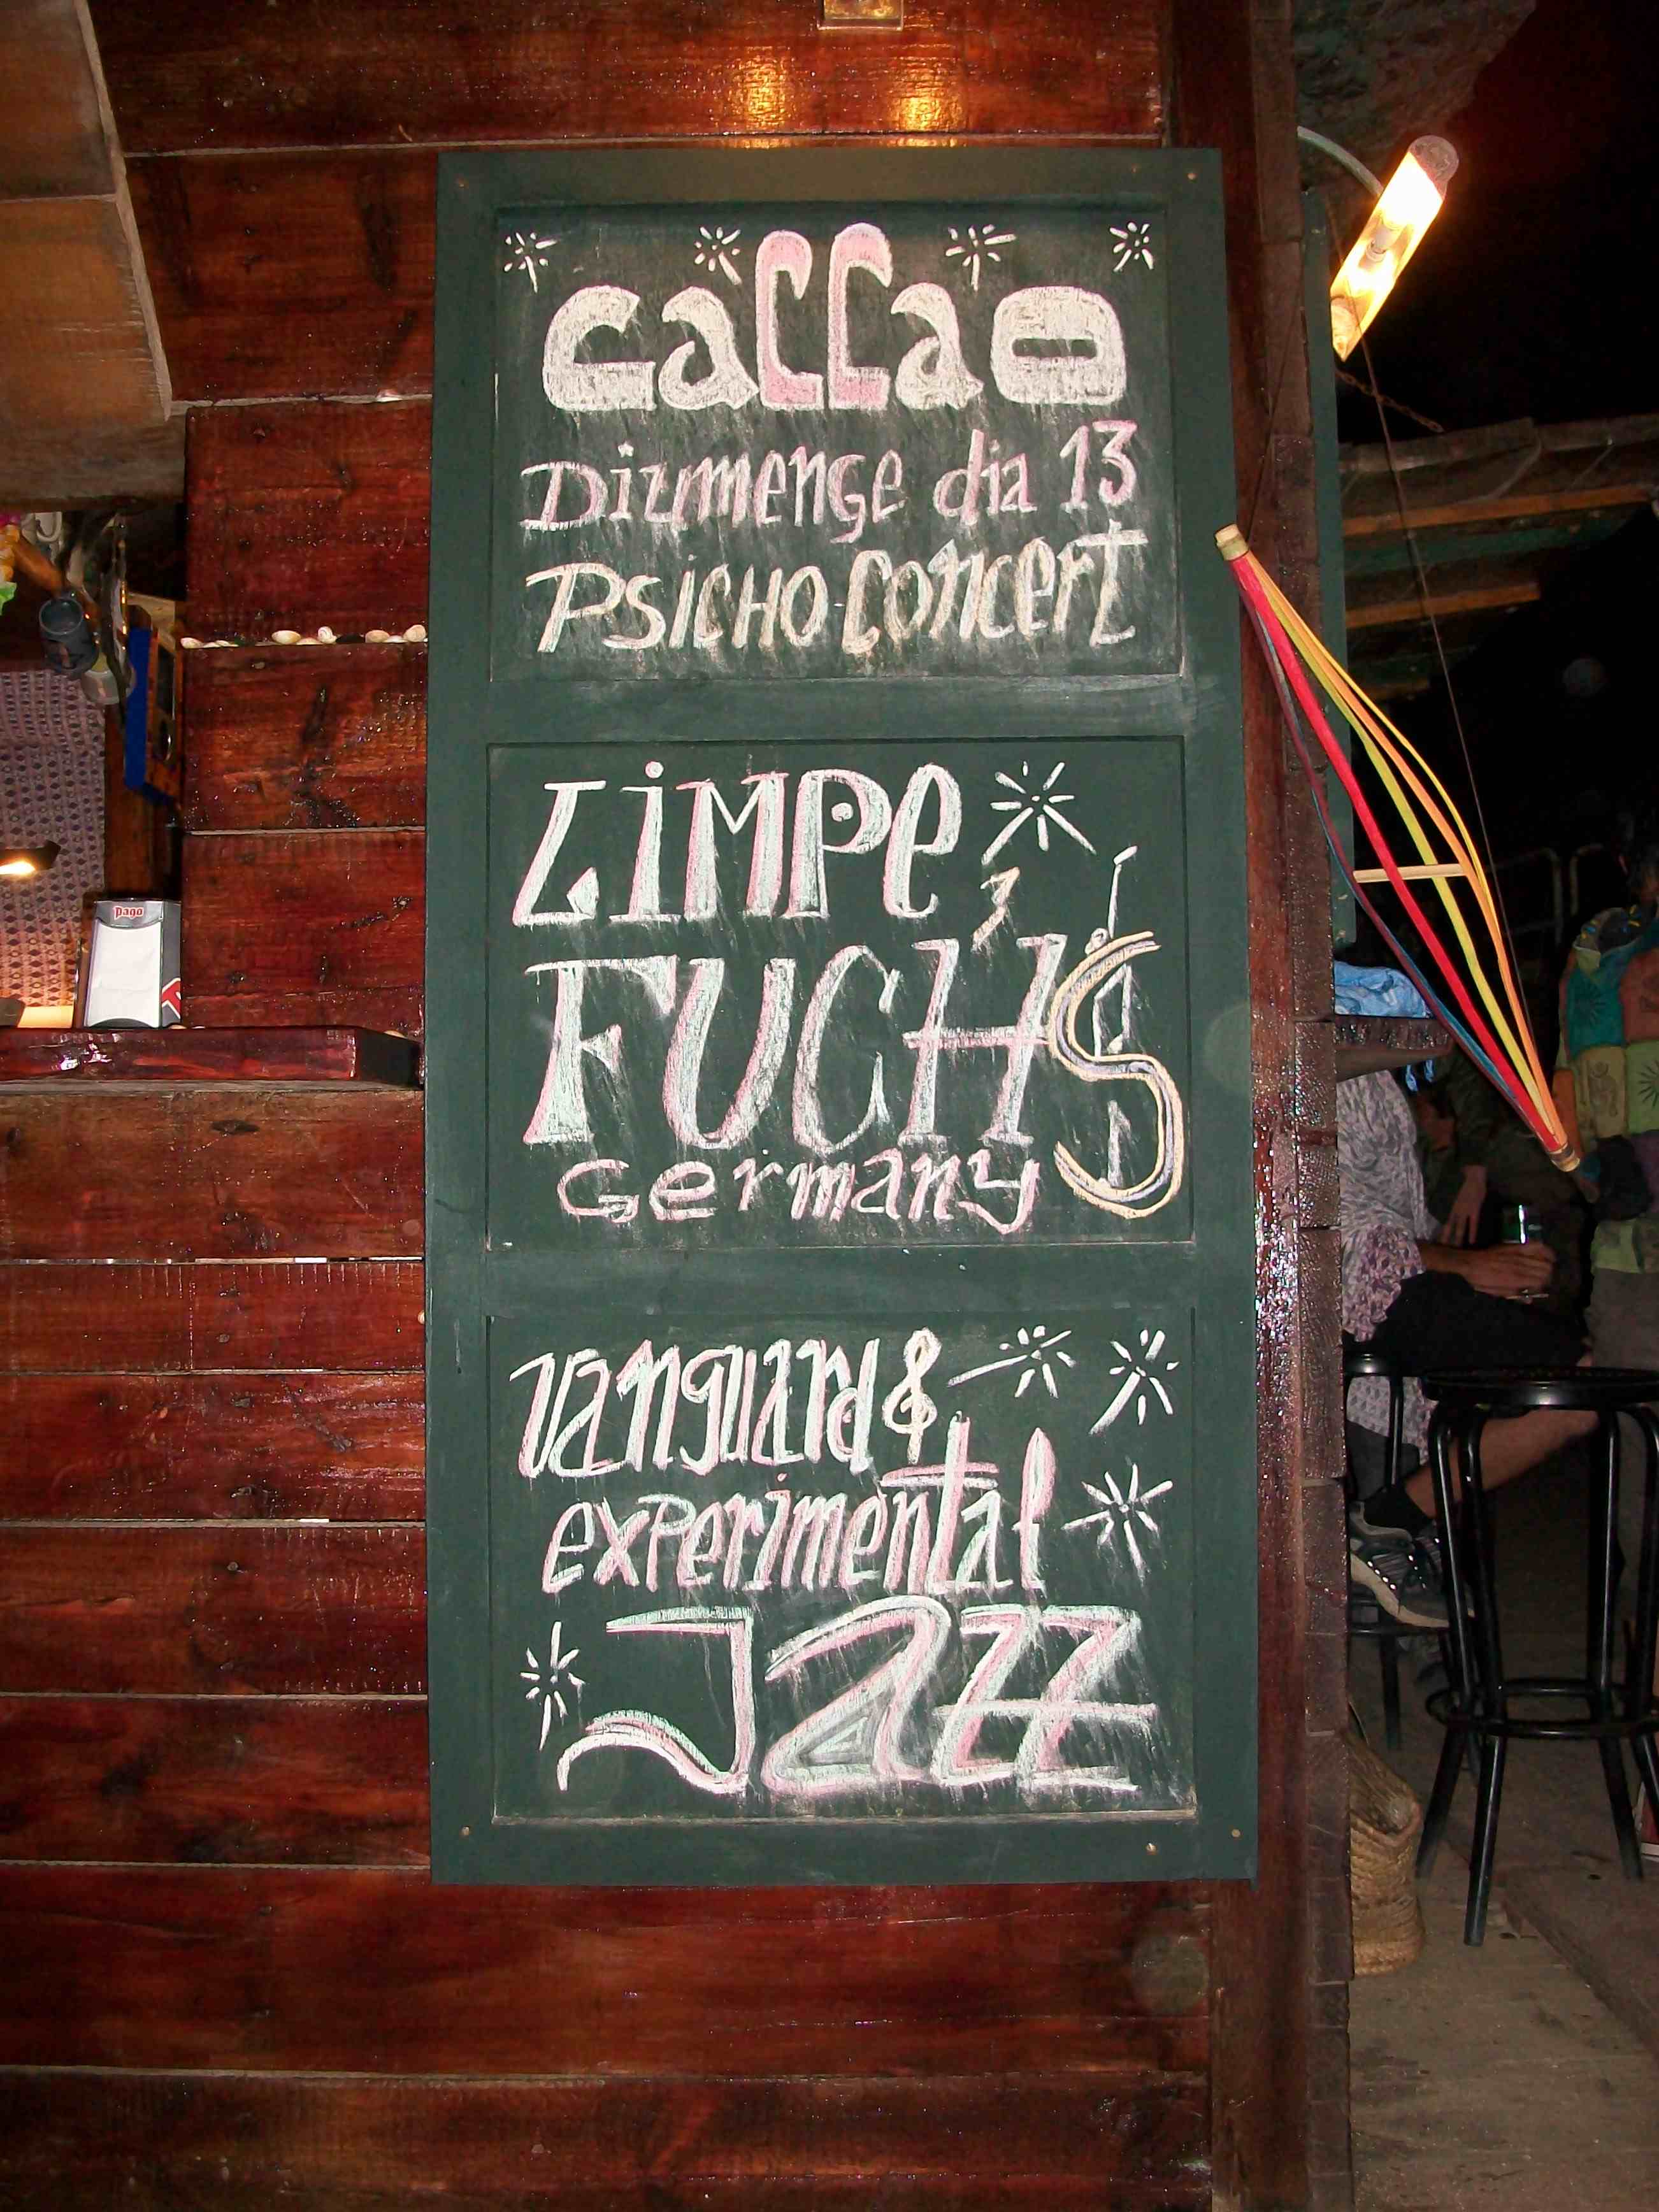 Callao
Diumenge dia 13
PSICHO-CONCERT
LIMPE
FUCHS
Germany
vanguard &
experimental
JAZZ
Pago